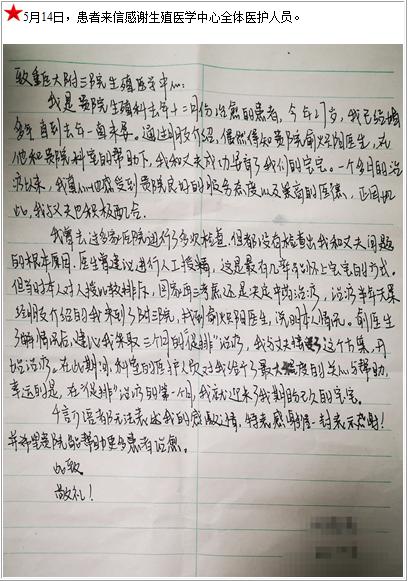 5月14日，患者来信感谢生殖医学中心全体医护人员。
致重医大附三院生殖医学中心：
我是贵院生殖科去年十一月份治愈的患者，今年27岁，我已结婚
多年直到去年一直未孕。通过朋友介绍，偶然得知贵院俞炽阳医生，在
他和贵院科室的帮助下，我和丈夫成功孕育了我们的宝宝。一个多月的治
疗以来，我真切地感受到贵院良好的服务态度以及崇高的医德，正因如
此，我与丈夫也积极配合。
我曾去过多家医院进行了多次检查，但都没有检查出我和丈夫问题
的根本原因，医生曾建议进行人工授精，这是最有几率能怀上宝宝的方式。
但当时本人对人授比较排斥，回家再三考虑还是决定中药治疗，治疗半年无果
经朋友介绍的我来到了附三院，找到俞炽阳医生，说明本人情况。俞医生
了解情况后，建议我采取三个月的“促排”治疗，我与丈夫接受了这个方案，开
始治疗。在此期间，科室的医护人员对我给予了最大程度的关心与帮助，
幸运的是，在“促排”治疗的第一个月，我就迎来了我期盼已久的宝宝。
千言万语都无法表达我的感激之情，特表感谢信一封表示感谢！
并希望贵院能帮助更多患者治愈。
此致
敬礼！